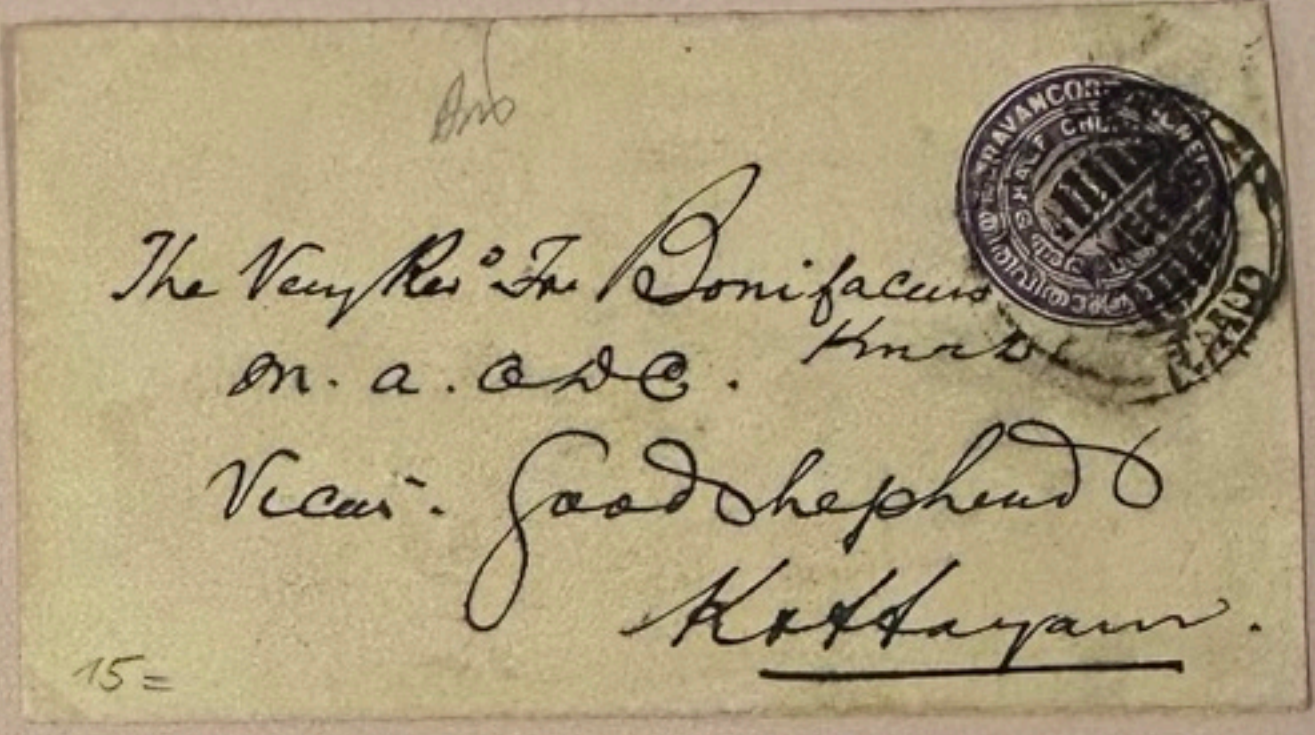 Ans
TRAVANCORE
HALF CHUCKRAM
The Very Revd Fr. Bonifacius
M. A. ODC.
Vicar. Good Shepherd
Kottayam.
15=